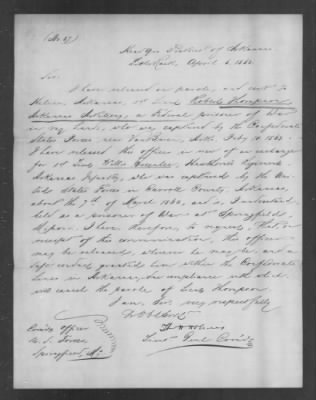 (No. 27)
Head Qrs District of Arkansas
Little Rock, April 6, 1863
Sir
I have released on parole, and sent to
Helena, Arkansas, 1st Lieut Thompson
Arkansas Artillery, a Federal prisoner of War
in my hands, who was captured by the Confederate
States forces near Van Buren, Arks, Feby 1863.
I have released this officer in view of an exchange
for 1st Lieut Willis Hawthorn's Regiment
Arkansas Infantry, who was captured by the Uni-
ted States Forces in Carroll County, Arkansas,
about the 7th of March 1863, and is, I understand,
held as a prisoner of War at Springfield,
Missouri. I have, therefore, to request, that, on
receipt of this communication, this officer
may be released, wherever he may be, and a
safe conduct granted him within the Confederate
lines in Arkansas, in compliance with which
will cancel the parole of Lieut Thompson
I am, Sir, very respectfully
Yr Obt Svt
Th H Holmes
Lieut Genl Comdg
Comdg Officer
U. S. Forces
Springfield, Mo